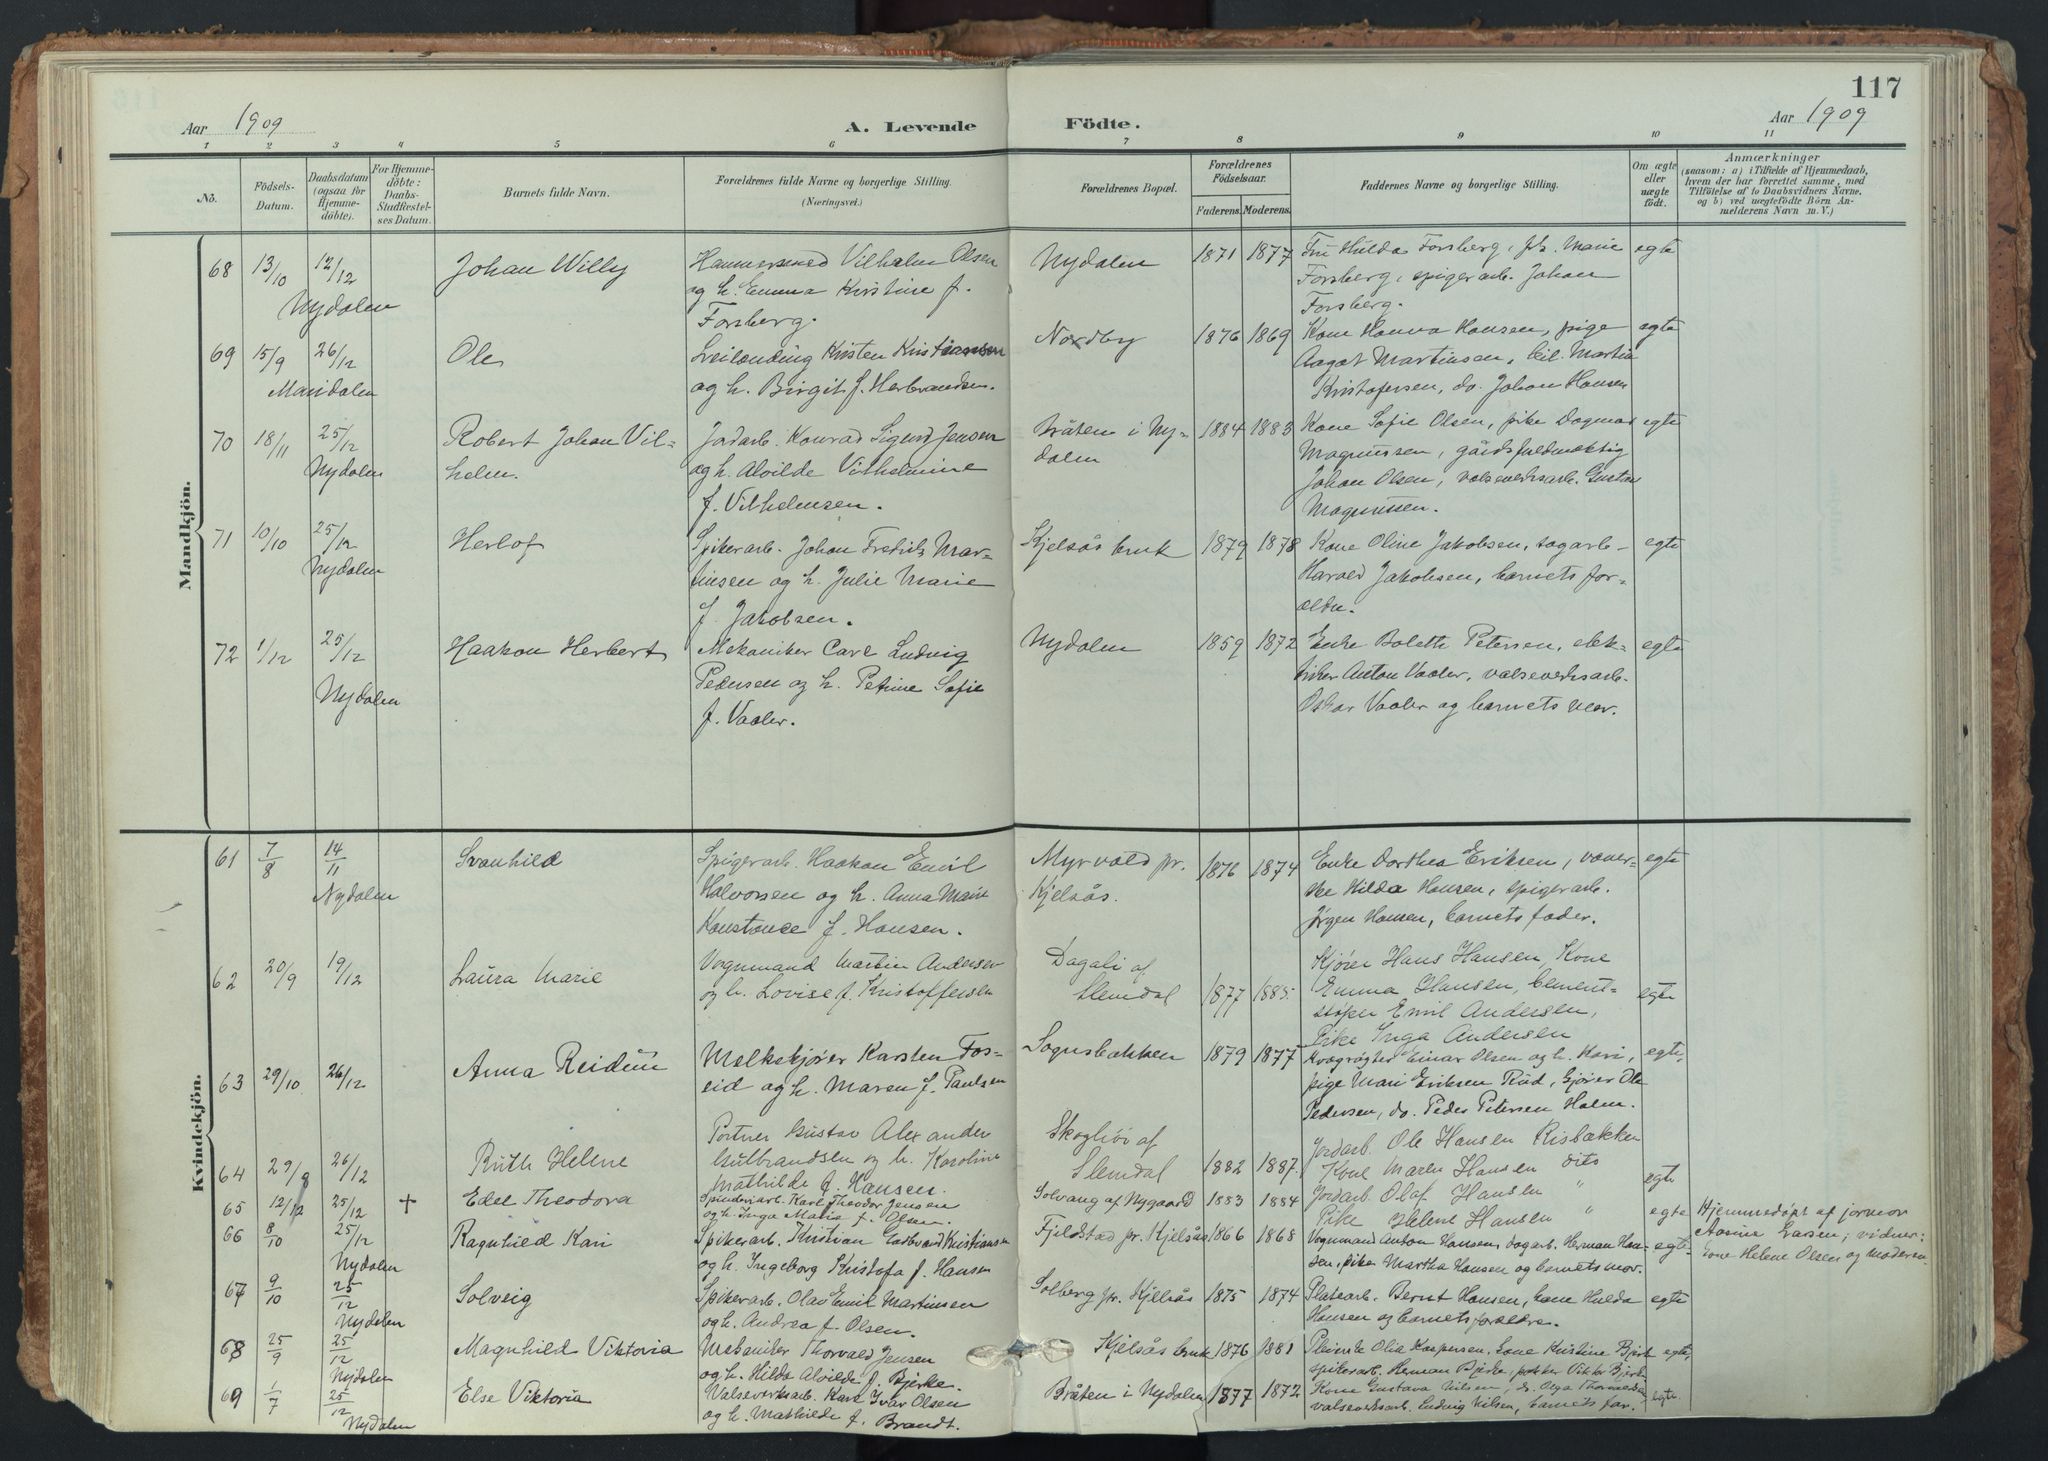 117
Aar 1909
A. Levende Födte.
Aar 1909
1 2 3 4 5 6 7 8 9 10 11
No.
Födsels-
Datum.
Daabsdatum
(ogsaa for
Hjemme-
döbte).
For Hjemme-
döbte:
Daabs-
Stadfæstel-
ses Datum.
Barnets fulde Navn.
Forældrenes fulde Navne og borgerlige Stilling.
(Næringsvei.)
Forældrenes Bopæl.
Forældrenes
Födselsaar.
Faderens. Moderens.
Faddernes Navne og borgerlige Stilling.
Om ægte
eller
uægte
født.
Anmærkninger
(saasom: a) i Tilfælde af Hjemmedaab,
hvem der har forrettet samme, med
Tilføielse af to Daabsvidners Navne,
og b) ved uægtefödte Börn An-
melderens Navn m. V.)
Mandkjön.
68 13/10 12/12 Johan Willy Hammersmed Vilhelm Olsen Nydalen 1871 1877 Fru Hulda Forsberg, Marie egte
Nydalen og h. Emma Kristine f. Forsberg, spigerarb. Johan
Forsberg. Forsberg.
69 15/9 26/12 Ole Leilending Kristen Kristiansen Nordby 1876 1869 Kone Hanna Hansen, pige egte
Maridalen og h. Birgit f. Herbrandsen. Aagot Martinsen, Martin
Kristofersen, do. Johan Hansen
70 18/11 25/12 Robert Johan Vil- Jordarb. Konrad Sigurd Jensen Bråten i Ny- 1884 1883 Kone Sofie Olsen, pike Dagmar egte
Nydalen helm. og h. Alvilde Vilhelmine dalen Magnussen, gårdsfuldmæktig
f. Vilhelmsen. Johan Olsen, valseverksarb. Gustav
Magnussen.
71 10/10 25/12 Herlof Spikerarb. Johan Fredrik Mar- Kjelsås bruk 1879 1878 Kone Oline Jakobsen, sagarb. egte
Nydalen tinsen og h. Julie Marie Harald Jakobsen, barnets for-
f. Jakobsen. ældre.
72 1/12 25/12 Haakon Herbert Mekaniker Carl Ludvig Nydalen 1859 1872 Enke Boleth Petersen, elek- egte
Nydalen Pedersen og h. Petrine Sofie triker Anton Vaaler, valseverksarb.
f. Vaaler. Oskar Vaaler og barnets mor.
Kvindekjön.
61 7/8 14/11 Svanhild Spigerarb. Haakon Emil Myrvold pr. 1876 1874 Enke Dorthea Eriksen, væver- egte
Nydalen Halvorsen og h. Anna Marie Kjelsås. ske Hilda Hansen, spigerarb.
Konstance f. Hansen. Jörgen Hansen, barnets fader.
62 20/9 19/12 Laura Marie Vognmand Martin Andersen Dagali af 1877 1885 Kjører Hans Hansen, Kone
og h. Lovise f. Kristoffersen Slemdal Emma Hansen, Cement- egte
støper Emil Andersen,
Pike Inga Andersen
63 29/10 26/12 Anna Reidun Melkekjører Karsten Fos- Sognsbækken 1879 1877 Kvægrøgter Einar Olsen og h. Kari, egte,
eid og h. Maren f. Paulsen pige Mari Eriksen Rud, kjører Ole
Pedersen, do. Peder Petersen Holm.
64 29/9 26/12 Ruth Helene Portner Gustav Alexander Skogli af Slemdal 1882 1887 Jordarb. Ole Hansen Risbækken
Gulbrandsen og h. Karoline Kone Maren Hansen dito egte
Mathilde f. Hansen. Jordarb. Olaf Hansen "
Pike Helene Hansen "
65 12/12 25/12 + Edel Theodora Karl Theodor Jensen Solvang af Nygaard 1883 1884 egte Hjemmedøpt af jormor
og h. Inga Marie f. Olsen. Larsen; vidner:
Kone Helene Olsen og moderen.
66 8/10 25/12 Ragnhild Kari Spikerarb. Kristian Kristiansen Fjeldstad pr. Kjelsås 1866 1868 Vognmand Anton Hansen, dagarb. Herman Han- egte
Nydalen og h. Ingeborg Kristofa f. Hansen sen, pike Martha Hansen og barnets mor.
67 9/10 25/12 Solveig Spikerarb. Olav Emil Martinsen Solberg pr. Kjelsås 1875 1874 Platearb. Bernt Hansen, kone Hulda egte
Nydalen og h. Andrea f. Olsen. Hansen og barnets forældre.
68 25/9 25/12 Magnhild Viktoria Mekaniker Thorvald Jensen Kjelsås bruk 1876 1881 Olia Kaspersen, kone Kristine Bjerke egte,
Nydalen og h. Hilda Alvilde f. Bjerke. spikerarb. Herman Bjerke, Viktor Bjerke
69 1/7 25/12 Else Viktoria Valseverksarb. Karl Ivar Olsen Bråten i Nydalen 1877 1872 Kone Gustava Nilsen, do. Olga Thorvaldsen egte.
Nydalen og h. Mathilde f. Brandt. valseverksarb. Ludvig Nilsen, barnets far.